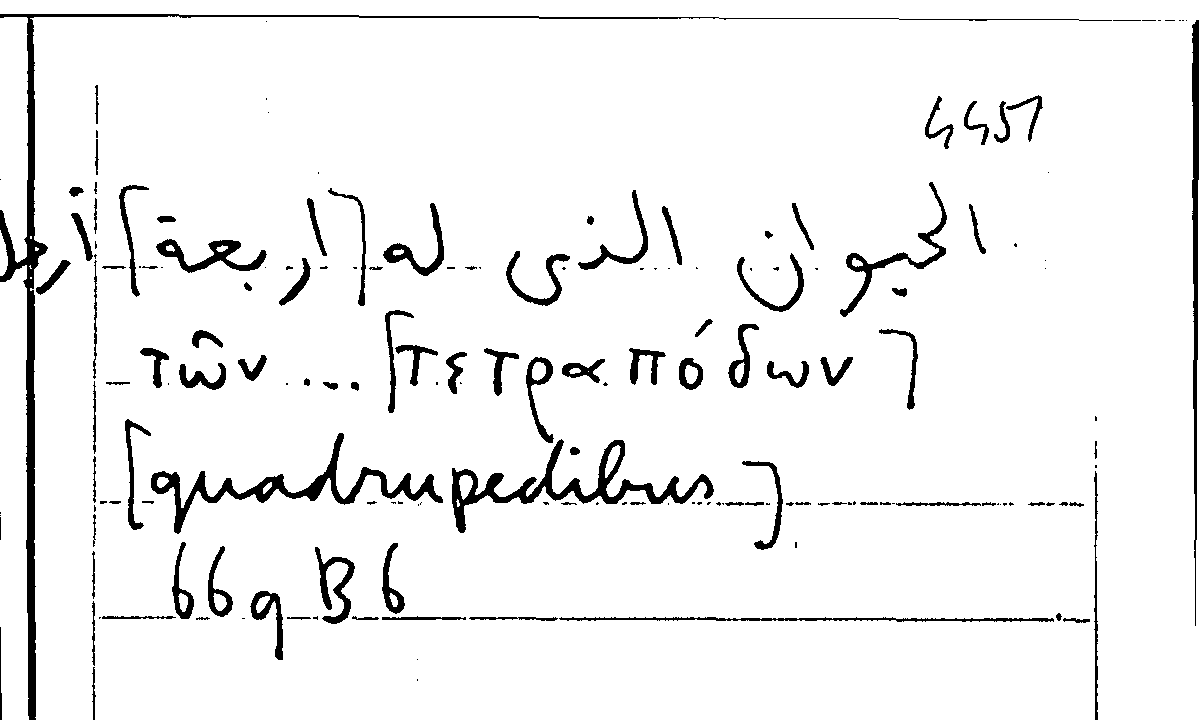 4451
الحيوان الذى له [اربعة] أرجل
τῶν ... [τετραπόδων]
[quadrupedibus]
669 B 6